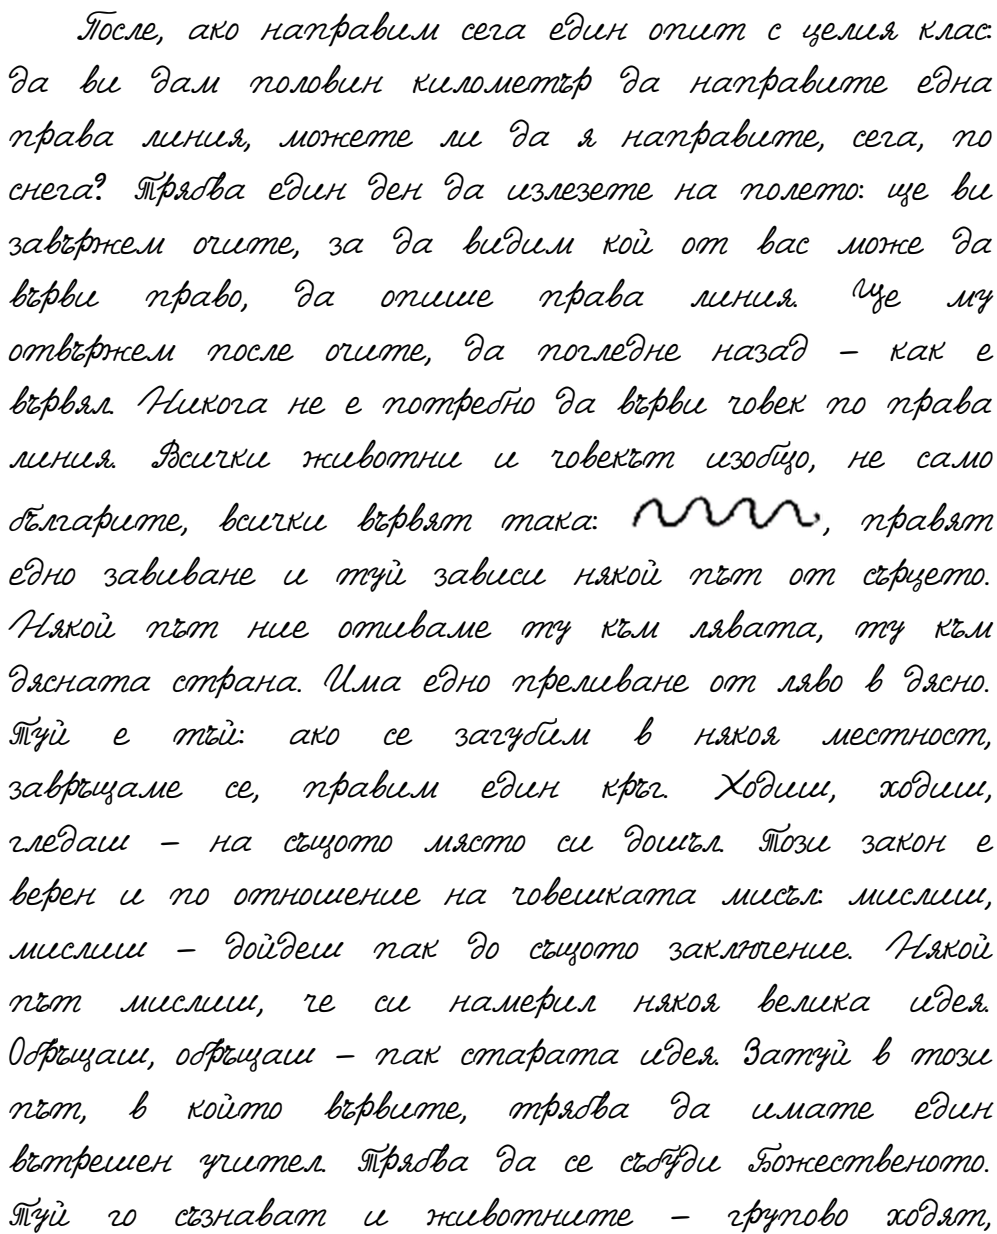 После, ако направим сега един опит с целия клас:
да ви дам половин километър да направите една
права линия, можете ли да я направите, сега, по
снега? Трябва един ден да излезете на полето: ще ви
завържем очите, за да видим кой от вас може да
върви право, да опише права линия. Ще му
отвържем после очите, да погледне назад – как е
вървял. Никога не е потребно да върви човек по права
линия. Всички животни и човекът изобщо, не само
българите, всички вървят така: , правят
едно завиване и туй зависи някой път от сърцето.
Някой път ние отиваме ту към лявата, ту към
дясната страна. Има едно преливане от ляво в дясно.
Туй е тъй: ако се загубим в някоя местност,
завръщаме се, правим един кръг. Ходиш, ходиш,
гледаш – на същото място си дошъл. Този закон е
верен и по отношение на човешката мисъл: мислиш,
мислиш – дойдеш пак до същото заключение. Някой
път мислиш, че си намерил някоя велика идея.
Обръщаш, обръщаш – пак старата идея. Затуй в този
път, в който вървите, трябва да имате един
вътрешен учител. Трябва да се събуди Божественото.
Туй го съзнават и животните – групово ходят,